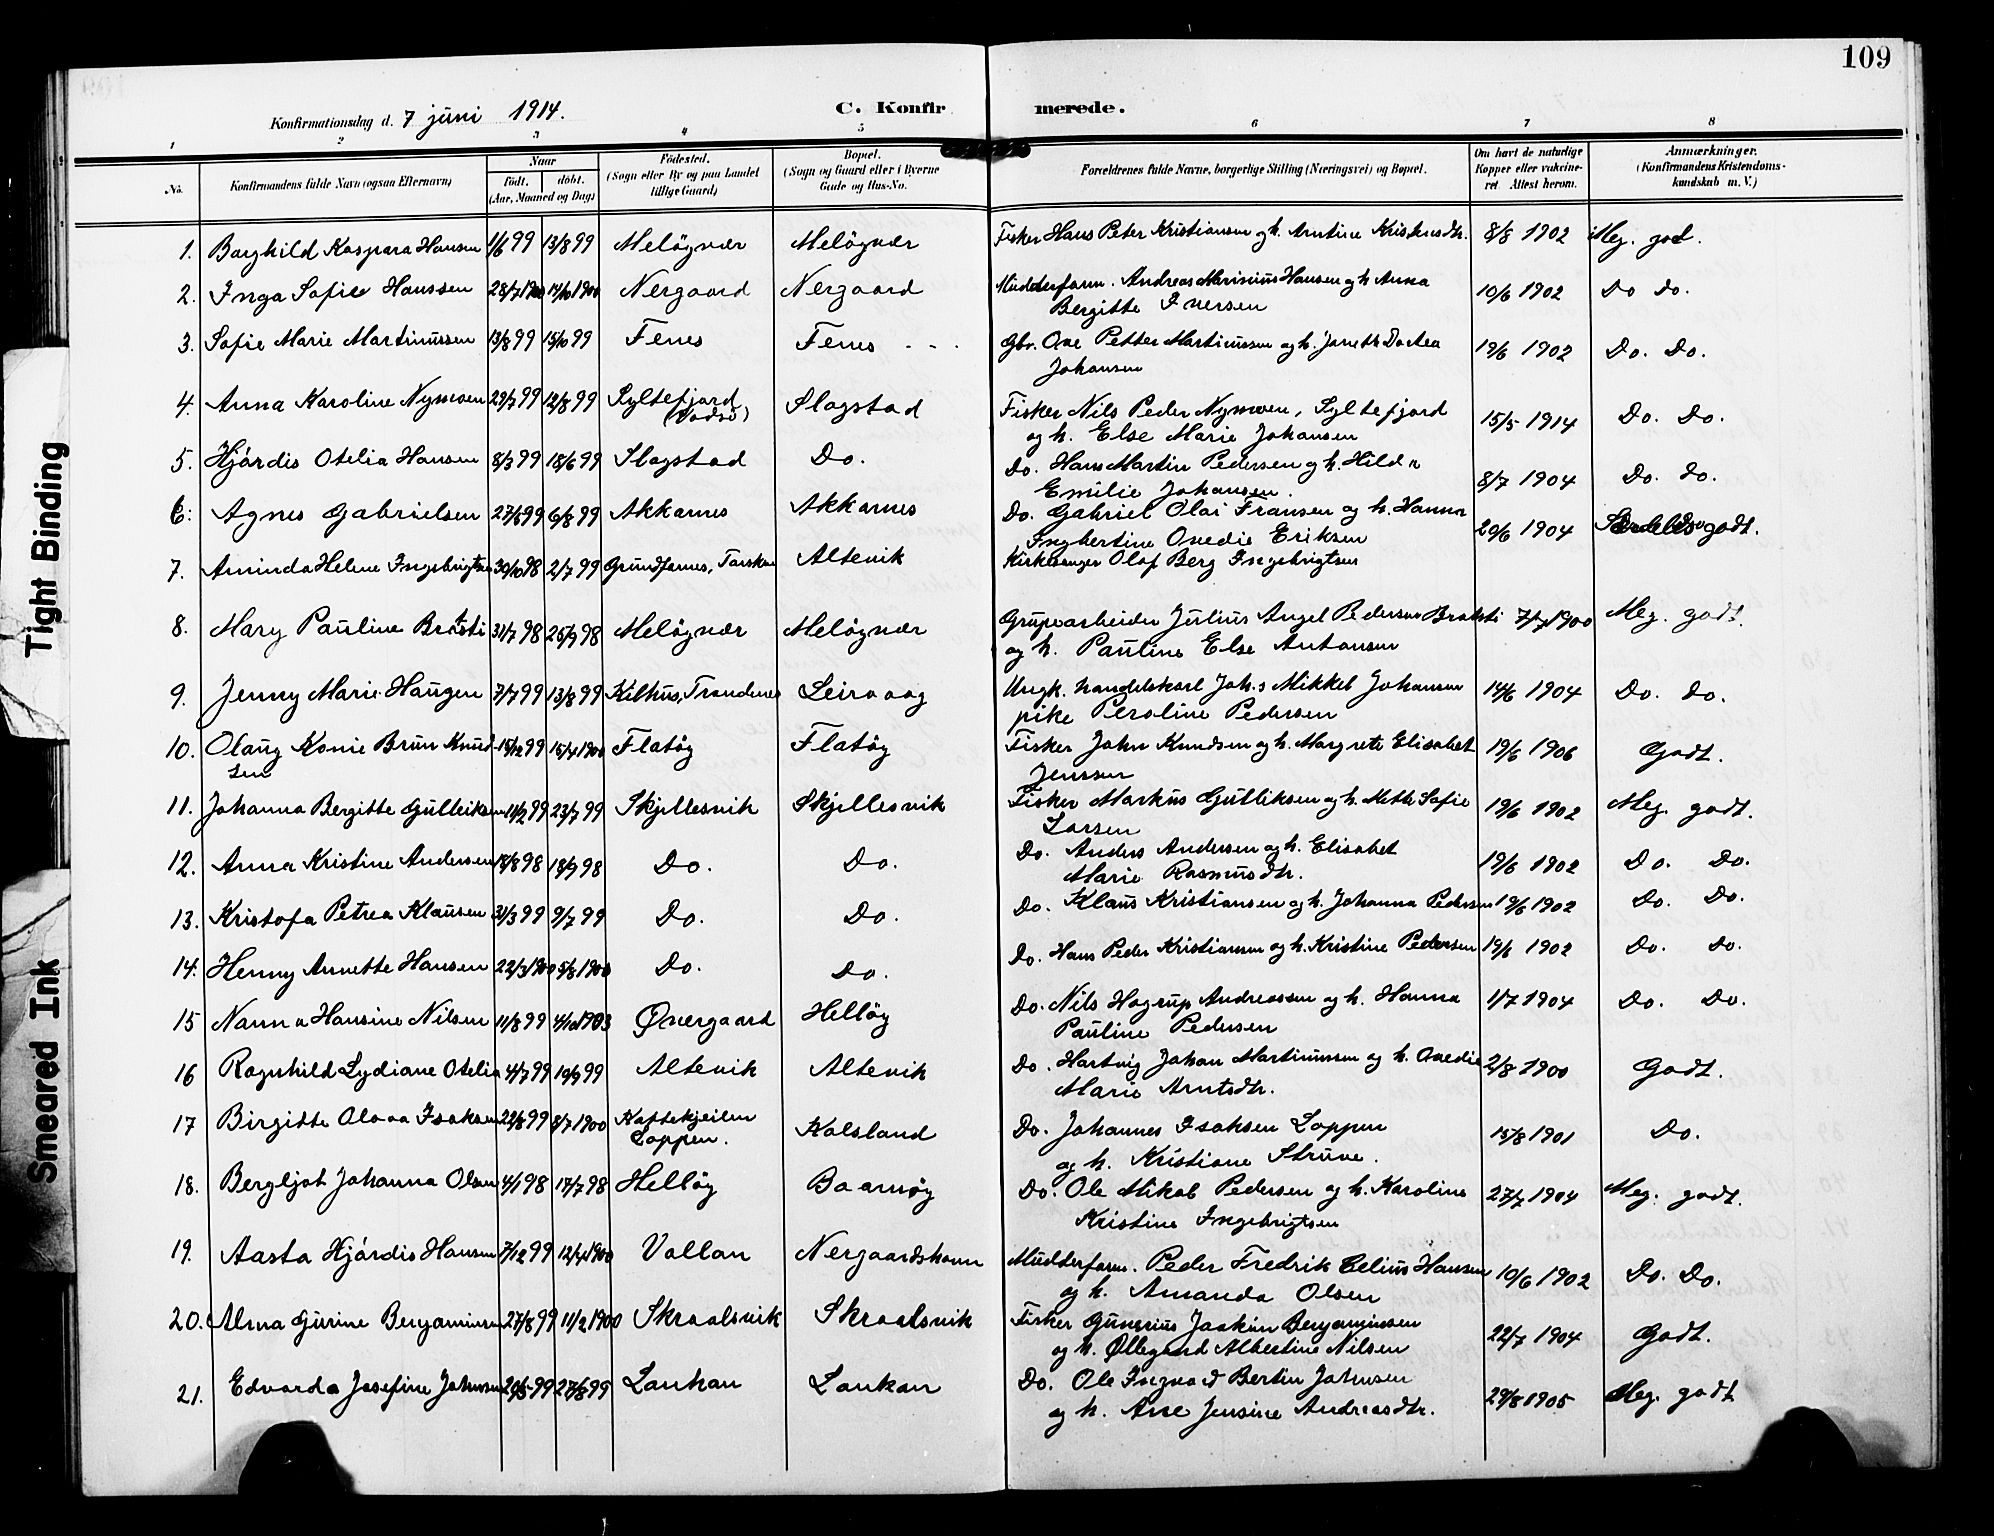 109
Konfirmationsdag d. 7 juni 1914.
C. Konfir merede.
1 2 3 4 5 6 7 8
No. Konfirmandens fulde Navn (ogsaa Efternavn) Naar Født. døbt. (Aar, Maaned og Dag) Fødested. (Sogn eller By og paa Landet tillige Gaard) Bopæl. (Sogn og Gaard eller i Byerne Gade og Hus-No. Forældrenes fulde Navne, borgerlige Stilling (Næringsvei) og Bopæl. Om havt de naturlige Kopper eller vakcineret. Attest herom. Anmærkninger. (Konfirmandens Kristendomskundskab m. V.)
1. Borghild Kaspara Hansen 1/6 99 13/8 99 Meløyvær Meløyvær Fisker Hans Peter Kristiansen og h. Arntine Kristensdtr. 8/8 1902 Meg. god.
2. Inga Sofie Hanssen 28/7 1900 14/10 1900 Nergaard Nergaard Mudderform. Andreas Marinius Hansen og h. Anna
Bergitte Iversen 10/6 1902 Do Do.
3. Sofie Marie Martinussen 13/8 99 15/10 99 Fenes Fenes Gbr. Ove Petter Martinussen og h. Janette Dortea
Johansen 19/6 1902 Do. Do.
4. Anna Karoline Nymoen 29/7 99 12/8 99 Syltefjord (Vadsø) Slagstad Fisker Nils Peder Nymoen, Syltefjord
og h. Else Marie Johansen 15/5 1914 Do. Do.
5. Hjørdis Otelia Hansen 8/3 99 18/6 99 Slagstad Do. Do. Hans Martin Pedersen og h. Hilda
Emilie Johansen. 8/7 1904 Do. Do.
6. Agnes Gabrielsen 27/6 99 6/8 99 Akkarnes Akkarnes Do. Gabriel Olai Fransen og h. Hanna
Ingbertine Ovedie Eriksen 20/6 1904 godt.
7. Aminda Helene Ingebrigtsen 30/10 98 2/7 99 Grundfarnes, Torsken Altevik Kirkesanger Olaf Berg Ingebrigtsen
8. Mary Pauline Bratsti 31/7 98 25/9 98 Meløyvær Meløyvær Grubearbeider Julius Angel Pedersen Bratsti 7/7 1900 Meg. godt.
og h. Pauline Else Antonsen
9. Jenny Marie Haugen 7/7 99 13/8 99 Kilhus, Trondenes Leiravag Ungk. handelskarl Johs Mikkel Johansen
pike Peroline Pedersen 14/6 1904 Do. Do.
10. Olaug Konie Brun Knud
sen 15/12 99 15/4 1900 Flatøy Flatøy Fisker John Knudsen og h. Margrete Elisabet
Jenssen 19/6 1906 Godt.
11. Johanna Bergitte Gulleiksen 11/2 99 23/7 99 Skjellesvik Skjellesvik Fisker Markus Gulliksen og h. Mette Sofie
Larsen 19/6 1902 Meg. godt.
12. Anna Kristine Andersen 18/8 98 18/9 98 Do. Do. Do. Anders Andersen og h. Elisabet
Marie Rasmusdtr. 19/6 1902 Do. Do.
13. Kristofa Petrea Klausen 31/3 99 9/7 99 Do. Do. Do. Klaus Kristiansen og h. Johanna Pedersen 19/6 1902 Do. Do.
14. Henny Annette Hansen 22/3 1900 5/8 1900 Do. Do. Do. Hans Peder Kristiansen og h. Kristine Pedersen 19/6 1902 Do. Do.
15 Nanna Hansine Nilsen 11/8 99 4/10 1903 Øvergaard Helløy Do. Nils Hagrup Andreassen og h. Hanna
Pauline Pedersen 1/7 1904 Do. Do.
16 Ragnhild Lydiane Otelia 4/7 99 10/9 99 Altevik Altevik Do. Hartvig Johan Martinussen og h. Ovedie
Marie Arntsdtr. 2/8 1900 Godt.
17 Birgitte Olava Isaksen 22/8 99 8/7 1900 Loppen. Kalsland Do. Johannes Isaksen Loppen
og h. Kristiane Struve. 15/8 1901 Do.
18. Bergljot Johanna Olsen 4/1 98 17/7 98 Helløy Baamøy Do. Ole Mikal Pedersen og h. Karoline
Kristine Ingebrigtsen 27/7 1904 Meg. godt.
19. Aasta Hjørdis Hansen 7/12 99 12/4 1900 Vollan Nergaardshavn Mudderform. Peder Fredrik Celius Hansen
og h. Amanda Olsen 10/6 1902 Do. Do.
20. Alma Gurine Benjaminsen 27/8 99 11/2 1900 Skraalsvik Skraalsvik Fisker Gunerius Joakim Benjaminsen
og h. Øllegard Albertine Nilsen 22/7 1904 Godt.
21. Edvarda Josefine Johnsen 29/5 99 27/8 99 Lankan Lankan Do. Ole Ingvard Bertin Johnsen
og h. Ane Jensine Andreasdtr. 29/8 1905 Meg. godt
Tight Binding
Smeared Ink